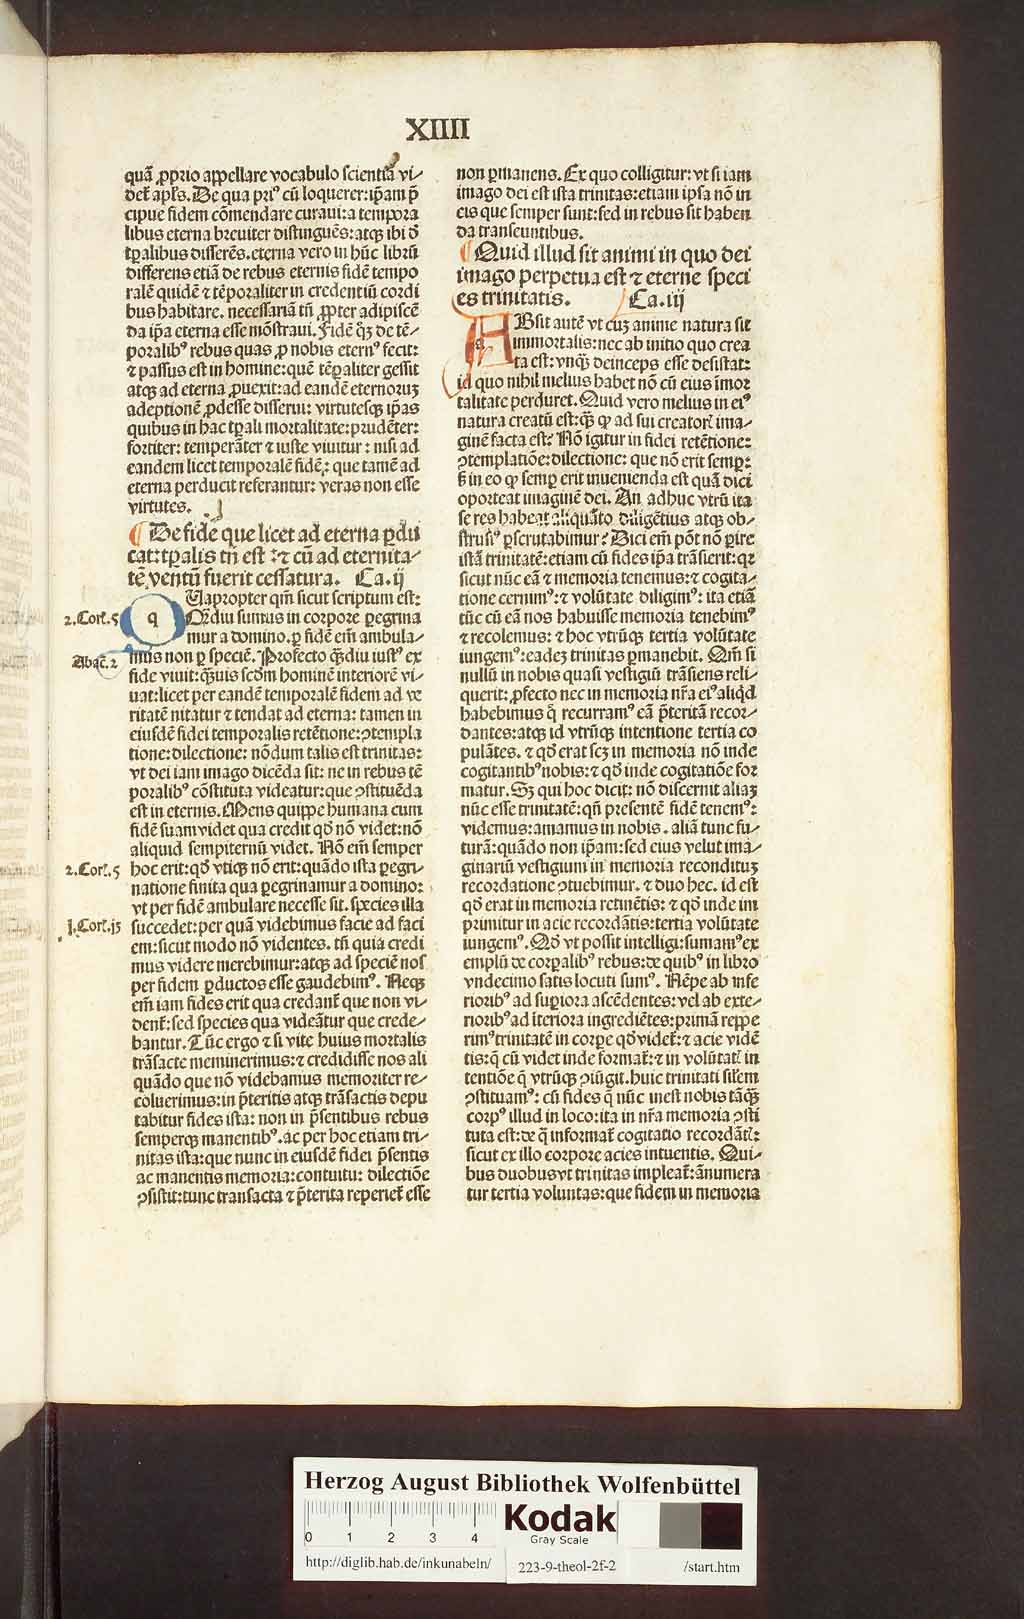 XIIII
quã ꝓprio appellare vocabulo scientiã vi⸗
det᷑ apl's. De qua pri⁹ cũ loquerer: ip̃am p̃
cipue fidem cõmendare curaui: a tempora
libus eterna breuiter distinguẽs: atqꝫ ibi ð
tꝑalibus differẽs. eterna vero in hũc librũ
differens etiã de rebus eternis fidẽ tempo
ralẽ quidẽ ⁊ tẽporaliter in credentiũ cordi
bus habitare. necessariã tñ ꝓpter adipiscẽ
da ip̃a eterna esse mõstraui. Fidẽ q̃ꝫ de tẽ⸗
poralib⁹ rebus quas ꝓ nobis etern⁹ fecit:
⁊ passus est in homine: quẽ tẽꝑaliter gessit
atqꝫ ad eterna ꝓuexit: ad eandẽ eternoruꝫ
adeptionẽ ꝓdesse disserui: virtutesqꝫ ip̃as
quibus in hac tꝑali mortalitate: prudẽter:
fortiter: temperãter ⁊ iuste viuitur: nisi ad
eandem licet temporalẽ fidẽ: que tamẽ ad
eterna perducit referantur: veras non esse
virtutes.
¶ De fide que licet ad eterna ꝑdu
cat: tꝑalis tñ est: ⁊ cũ ad eternita⸗
tẽ ventũ fuerit cessatura. Ca. ij
q
Uapropter qm̃ sicut scriptum est:
2. Cor. 5
Q̃diu sumus in corpore ꝑegrina
mur a domino. ꝑ fidẽ em̃ ambula⸗
Abac̃. 2
mus non ꝑ speciẽ. Profecto q̃diu iust⁹ ex
fide viuit: q̃uis scðm hominẽ interiorẽ vi⸗
uat: licet per eandẽ temporalẽ fidem ad ve
ritatẽ nitatur ⁊ tendat ad eterna: tamen in
eiusdẽ fidei temporalis retẽtione: ꝯtempla
tione: dilectione: nõdum talis est trinitas:
vt dei iam imago dicẽda sit: ne in rebus tẽ
poralib⁹ cõstituta videatur: que ꝯstituẽda
est in eternis. Mens quippe humana cum
fidẽ suam videt qua credit qð nõ videt: nõ
aliquid sempiternũ videt. Nõ em̃ semper
2. Cor. 5
hoc erit: qð vtiqꝫ nõ erit: quãdo ista ꝑegri⸗
natione finita qua ꝑegrinamur a domino:
vt per fidẽ ambulare necesse sit. species illa
j. Cor. j3
succedet: per quã videbimus facie ad faci
em: sicut modo nõ videntes. tñ quia credi
mus videre merebimur: atqꝫ ad speciẽ nos
per fidem ꝑductos esse gaudebim⁹. Neqꝫ
em̃ iam fides erit qua credant᷑ que non vi⸗
dent᷑: sed species qua videãtur que crede⸗
bantur. Tũc ergo ⁊ si vite huius mortalis
trãsacte meminerimus: ⁊ credidisse nos ali
quãdo que nõ videbamus memoriter re⸗
coluerimus: in p̃teritis atqꝫ trãsactis depu
tabitur fides ista: non in p̃sentibus rebus
semperqꝫ manentib⁹. ac per hoc etiam tri⸗
nitas ista: que nunc in eiusdẽ fidei p̃sentis
ac manentis memoria: contuitu: dilectiõe
ꝯsistit: tunc transacta ⁊ p̃terita reperiet᷑ esse
non ꝑmanens. Ex quo colligitur: vt si iam
imago dei est ista trinitas: etiam ipsa nõ in
eis que semper sunt: sed in rebus sit haben
da transeuntibus.
¶ Quid illud sit animi in quo dei
imago perpetua est ⁊ eterne speci
es trinitatis. Ca. iij
ABsit autẽ vt cuꝫ anime natura sit
immortalis: nec ab initio quo crea
ta est: vnq̃ deinceps esse desistat:
id quo nihil melius habet nõ cũ eius ĩmor
talitate perduret. Quid vero melius in ei⁹
natura creatũ est: q̃ qꝫ ad sui creatoris ima⸗
ginẽ facta est? Nõ igitur in fidei retẽtione:
ꝯtemplatiõe: dilectione: que nõ erit semꝑ:
ß in eo qꝫ semꝑ erit inuenienda est quã dici
oporteat imaginẽ dei. An adhuc vtrũ ita
se res habeat aliquãto diligẽtius atqꝫ ob⸗
strusi⁹ ꝑscrutabimur? Dici em̃ põt nõ ꝑire
istã trinitatẽ: etiam cũ fides ip̃a trãsierit: qꝛ
sicut nũc eã ⁊ memoria tenemus: ⁊ cogita⸗
tione cernim⁹: ⁊ volũtate diligim⁹: ita etiã
tũc cũ eã nos habuisse memoria tenebim⁹
⁊ recolemus: ⁊ hoc vtrũqꝫ tertia volũtate
iungem⁹: eadeꝫ trinitas ꝑmanebit. Qm̃ si
nullũ in nobis quasi vestigiũ trãsiens reli⸗
querit: ꝓfecto nec in memoria nr̃a ei⁹ aliqd
habebimus q̃ recurram⁹ eã p̃teritã recor⸗
dantes: atqꝫ id vtrũqꝫ intentione tertia co
pulãtes. ⁊ qð erat scꝫ in memoria nõ inde
cogitantib⁹ nobis: ⁊ qð inde cogitatiõe for
matur. Sꝫ qui hoc dicit: nõ discernit aliaꝫ
nũc esse trinitatẽ: qñ presentẽ fidẽ tenem⁹:
videmus: amamus in nobis. aliã tunc fu⸗
turã: quãdo non ip̃am: sed eius velut ima⸗
ginariũ vestigium in memoria recondituꝫ
recordatione ꝯtuebimur. ⁊ duo hec. id est
qð erat in memoria retinẽtis: ⁊ qð inde im
primitur in acie recordãtis: tertia volũtate
iungem⁹. Qð vt possit intelligi: sumam⁹ ex
emplũ de corꝑalib⁹ rebus: de quib⁹ in libro
vndecimo satis locuti sum⁹. Nẽpe ab infe
riorib⁹ ad suꝑiora ascẽdentes: vel ab exte⸗
riorib⁹ ad ĩteriora ingrediẽtes: primã reppe
rim⁹ trinitatẽ in corꝑe qð videt᷑: ⁊ acie vidẽ
tis: q̃ cũ videt inde format᷑: ⁊ in volũtatis in
tentiõe q̃ vtrũqꝫ ꝯiũgit. huic trinitati sil'em
ꝯstituam⁹: cũ fides q̃ nũc inest nobis tãq̃ꝫ
corp⁹ illud in loco: ita in nr̃a memoria ꝯsti
tuta est: de q̃ informat᷑ cogitatio recordãtis:
sicut ex illo corpore acies intuentis. Qui⸗
bus duobus vt trinitas impleat᷑: ãnumera
tur tertia voluntas: que fidem in memoria
Herzog August Bibliothek Wolfenbüttel
0 1 2 3 4
Kodak
Gray Scale
http://diglib.hab.de/inkunabeln/
223-9-theol-2f-2
/start.htm